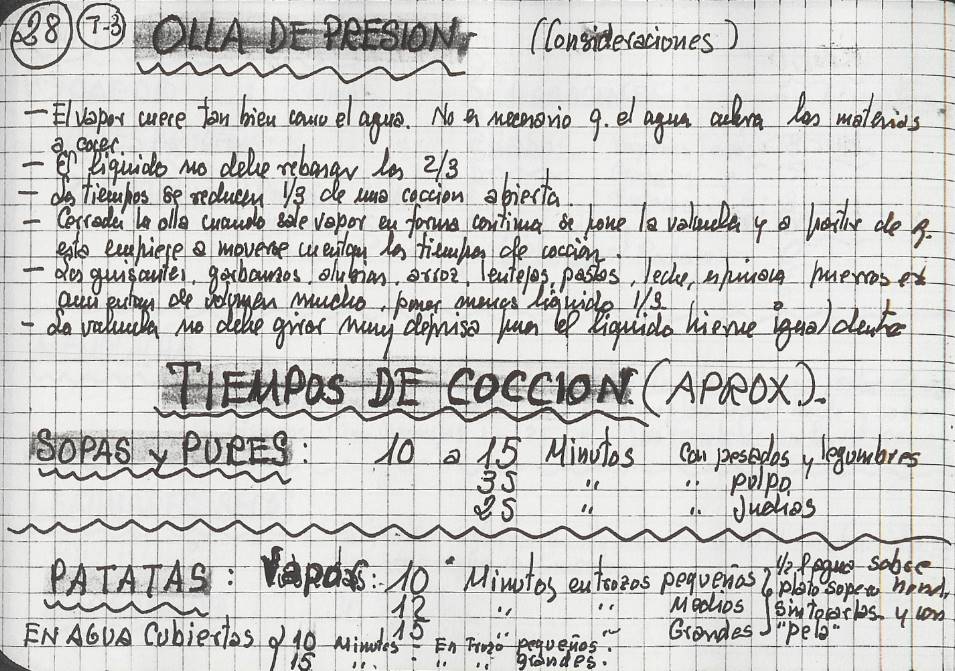 28 T-3 OLLA DE PRESION. (Consideraciones)
- El vapor cuece tan bien como el agua. No es necesario q. el agua cubra los materias
a cocer.
- El liquido no debe rebasar los 2/3
- Los tiempos se reducen 1/3 de una coccion abierta.
- Cerrada la olla cuando sale vapor en forma continua se pone la valvula y a partir de q.
esta empiece a moverse cuentan los tiempos de coccion.
- Los guisantes, garbanzos, alubias, arroz, lentejas, pastas, leche, espinaca puerros
aumentan de volumen mucho, poner menos liquido 1/3.
- La valvula no debe girar muy deprisa pues el liquido hierve igual dentro
TIEMPOS DE COCCION (APROX.).
SOPAS y PURES: 10 a 15 Minutos con pesados y legumbres
35 " " pulpo
25 " " Judias
PATATAS: Vapor: 10 Minutos en trozos pequeños } 1/2 l agua sobre
12 " " Medios } plato sopero hond,
15 " " Grandes } sin tocarlas y con
"pela"
EN AGUA Cubiertas { 10 Minutos - En Trozo pequeños.
15 " - " " grandes.